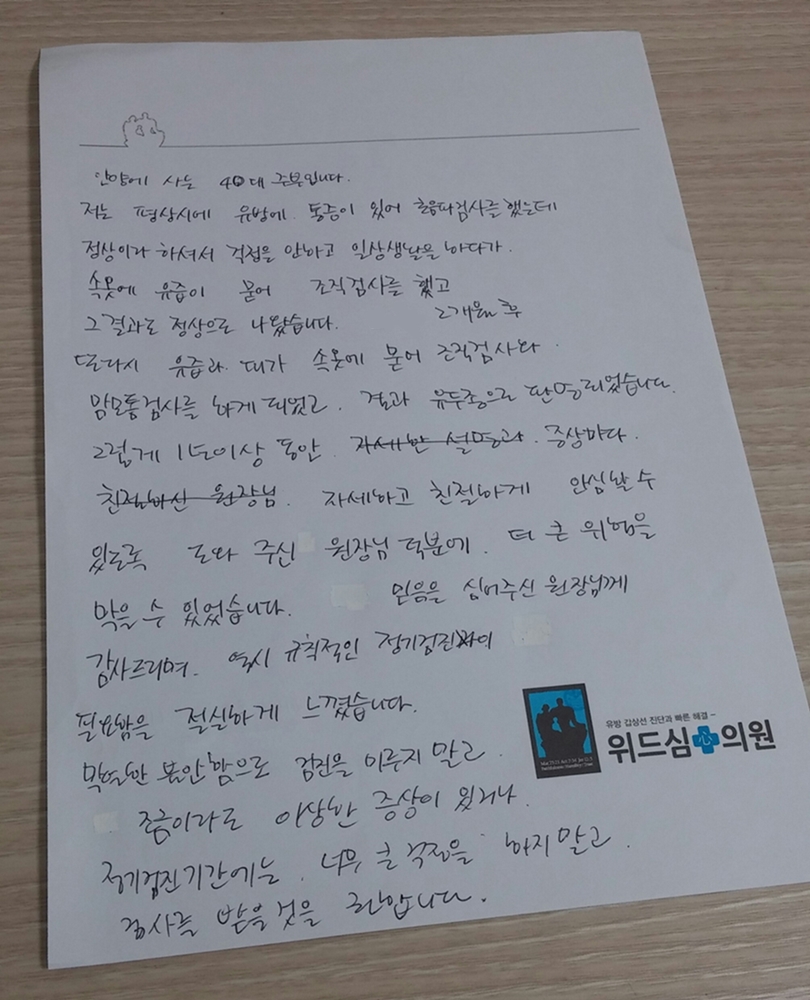 안양에 사는 40대 주부입니다.
저는 평상시에 유방에 통증이 있어 초음파검사를 했는데
정상이라 하셔서 걱정을 안하고 일상생활을 하다가.
속옷에 유즙이 묻어 조직검사를 했고
그결과도 정상으로 나왔습니다. 2개월 후
또다시 유즙과 피가 속옷에 묻어 조직검사와
맘모톰검사를 하게 되었고. 결과 유두종으로 판명되었습니다.
그렇게 1년이상 동안. 자세한 설명과. 증상마다.
친절하신 원장님. 자세하고 친절하게 안심할 수
있도록 도와 주신 원장님 덕분에. 더 큰 위험을
막을 수 있었습니다. 믿음을 심어주신 원장님께
감사드리며. 역시 규칙적인 정기검진의
필요함을 절실하게 느꼈습니다.
막연한 불안함으로 검진을 미루지 말고.
조금이라도 이상한 증상이 있거나.
정기검진기간에는. 너무 큰 걱정을 하지말고.
검사를 받을것을 권합니다.
유방 갑상선 진단과 빠른 해결 –
위드심心의원